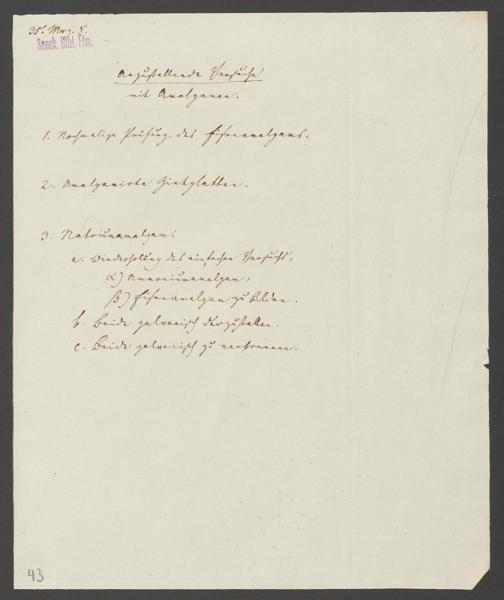 Senck. Bibl. Ffm.
Anzustellende Versuche
mit Amalgamen.
1. Nochmalige Prüfung des Eisenamalgams.
2. Amalgamirte Zinkplatten.
3. Natriumamalgam.
a. Wiederholung des einfachen Versuchs,
α) Ammoniumamalgam,
β) Eisenamalgam zu bilden.
b. Beide galvanisch darzustellen.
c. Beide galvanisch zu verbrennen.
43